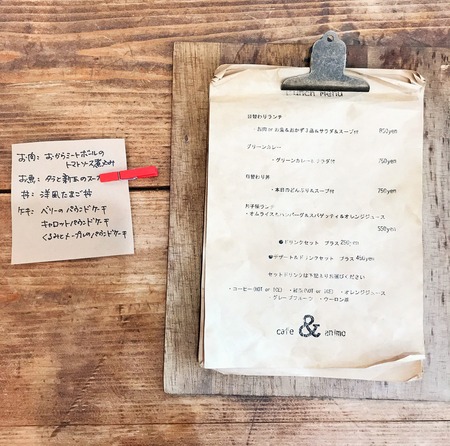 お肉: おからミートボールの
トマトソース煮込み
お魚: タラと新玉のスープ
丼: 洋風たまご丼
ケーキ: ベリーのパウンドケーキ
キャロットパウンドケーキ
くるみとメープルのパウンドケーキ
Lunch Menu
日替わりランチ
・お肉 or お魚&おかず3品&サラダ&スープ付 850yen
グリーンカレー
・グリーンカレー&サラダ付 750yen
日替わり丼
・本日のどんぶり&スープ付 750yen
お子様ランチ
・オムライス&ハンバーグ&スパゲッティ&オレンジジュース
550yen
❶ドリンクセット プラス 250yen
❷デザート&ドリンクセット プラス 450yen
セットドリンクは下記よりお選びください
・コーヒー(HOT or ICE) ・紅茶(HOT or ICE) ・オレンジジュース
・グレープフルーツ ・ウーロン茶
cafe & anima